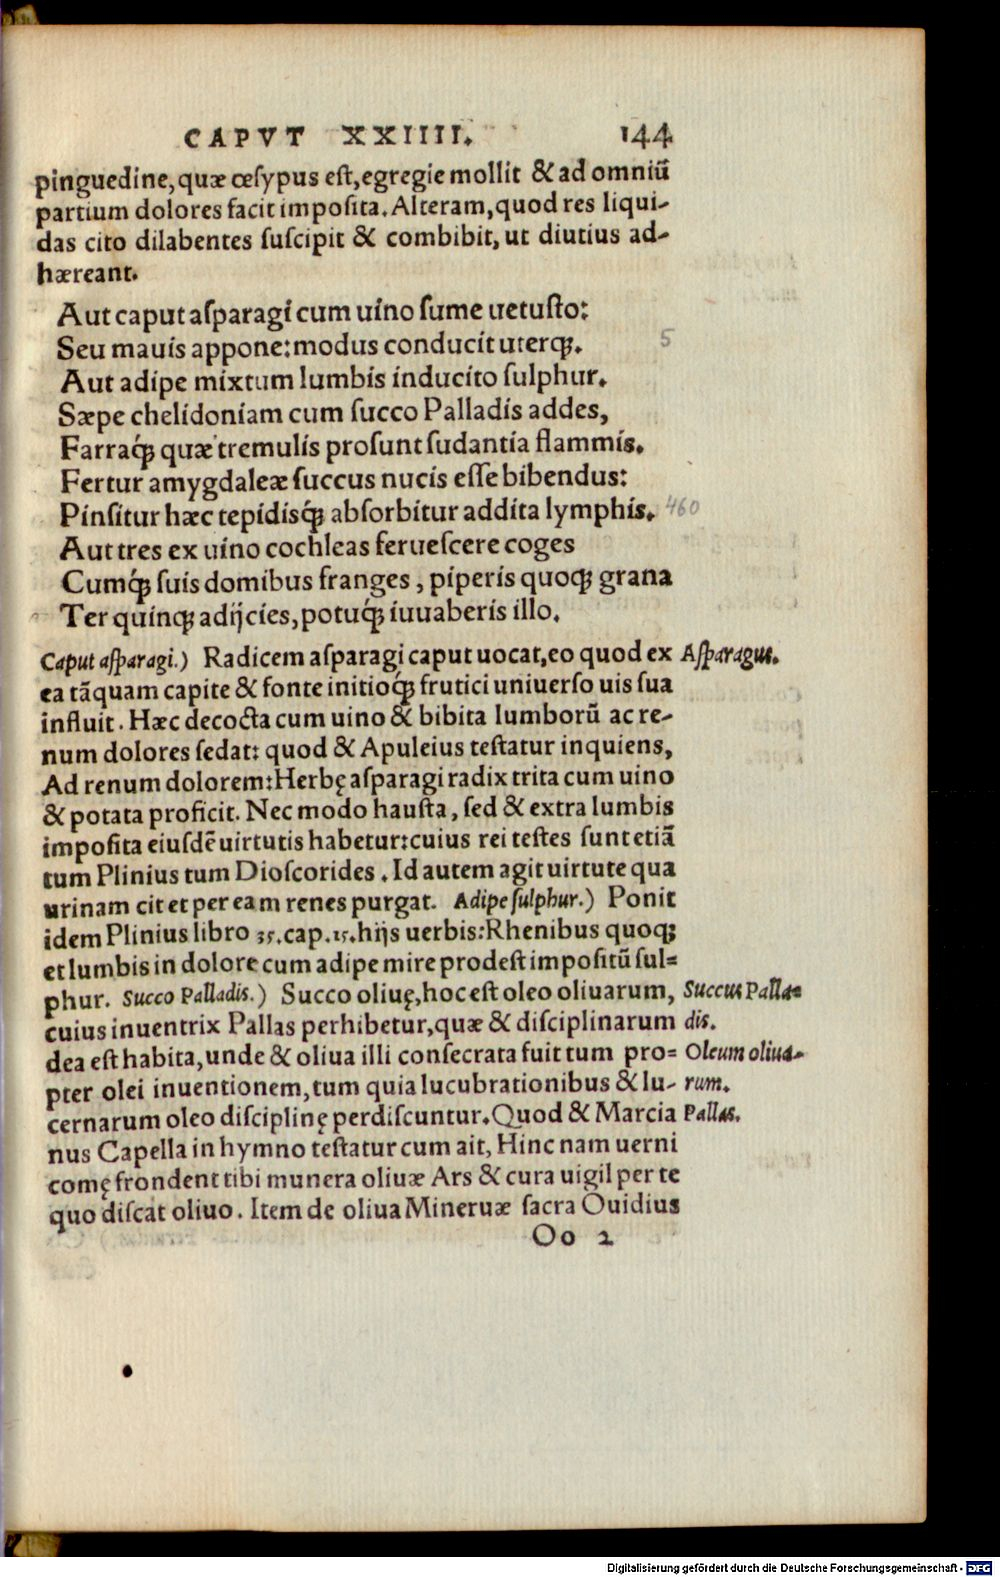 CAPVT XXIIII. 144
pinguedine, quæ œsypus est, egregie mollit & ad omniũ
partium dolores facit imposita. Alteram, quod res liqui-
das cito dilabentes suscipit & combibit, ut diutius ad-
hæreant.
Aut caput asparagi cum uino sume uetusto:
Seu mauis appone: modus conducit uterq;. 5
Aut adipe mixtum lumbis inducito sulphur.
Sæpe chelidoniam cum succo Palladis addes,
Farraq́; quæ tremulis prosunt sudantia flammis.
Fertur amygdaleæ succus nucis esse bibendus:
Pinsitur hæc tepidisq́; absorbitur addita lymphis. 460
Aut tres ex uino cochleas feruescere coges
Cumq́; suis domibus franges, piperis quoq; grana
Ter quinq; adijcies, potuq́; iuuaberis illo.
Caput asparagi.) Radicem asparagi caput uocat, eo quod ex Asparagus.
ea tãquam capite & fonte initioq́; frutici uniuerso uis sua
influit. Hæc decocta cum uino & bibita lumborũ ac re-
num dolores sedat: quod & Apuleius testatur inquiens,
Ad renum dolorem: Herbę asparagi radix trita cum uino
& potata proficit. Nec modo hausta, sed & extra lumbis
imposita eiusdẽ uirtutis habetur: cuius rei testes sunt etiã
tum Plinius tum Dioscorides. Id autem agit uirtute qua
urinam cit et per eam renes purgat. Adipe sulphur.) Ponit
idem Plinius libro 35. cap. 15. hijs uerbis: Rhenibus quoq;
et lumbis in dolore cum adipe mire prodest impositũ sul=
phur. Succo Palladis.) Succo oliuę, hoc est oleo oliuarum, Succus Palla=
cuius inuentrix Pallas perhibetur, quæ & disciplinarum dis.
dea est habita, unde & oliua illi consecrata fuit tum pro= Oleum oliua-
pter olei inuentionem, tum quia lucubrationibus & lu- rum.
cernarum oleo disciplinę perdiscuntur. Quod & Marcia Pallas.
nus Capella in hymno testatur cum ait, Hinc nam uerni
comę frondent tibi munera oliuæ Ars & cura uigil per te
quo discat oliuo. Item de oliua Mineruæ sacra Ouidius
Oo 2
Digitalisierung gefördert durch die Deutsche Forschungsgemeinschaft - DFG